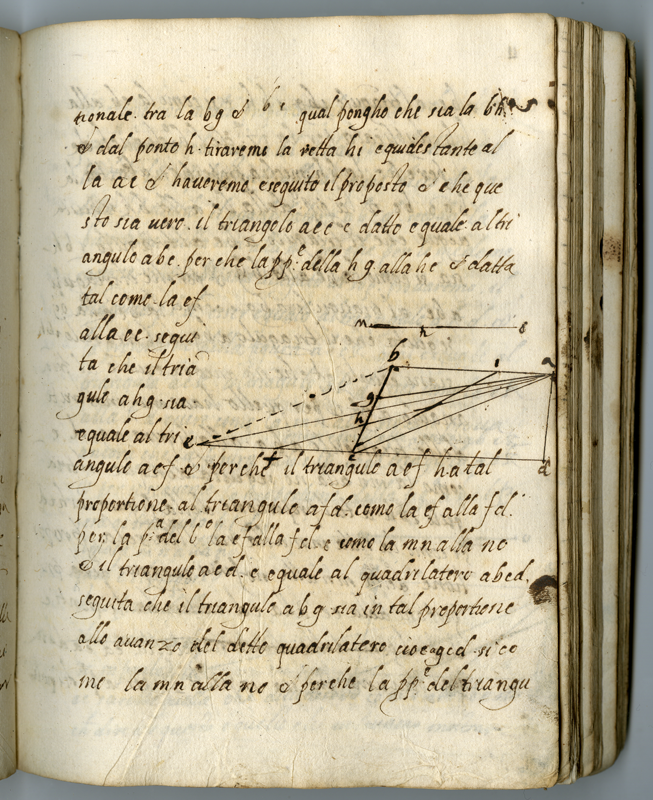 tionale tra la bg & bc qual pongho che sia la bh
& dal ponto h. tiraremo la retta hi equidestante al
la ac & haveremo eseguito il proposto & che que
sto sia vero. il triangolo aec e datto equale al tri
angulo abc. perche la pp.e della hg. alla hc & datta
tal come la ef
alla ec. segui
ta che il tria
gule ahg. sia
equale al tri
m n o
b i a
g
h
e f c d
angulo acf & perche il triangule aef ha tal
proportione. al triangule afd. como la ef alla fd.
per la p.a del 6.o la ef alla fd. e como la mn alla no
& il triangulo aed. e equale al quadrilatero abcd.
seguita che il triangule abg sia in tal proportione
allo avanzo del detto quadrilatero cioe agcd. si co
me la mn alla no & perche la pp.e del triangu